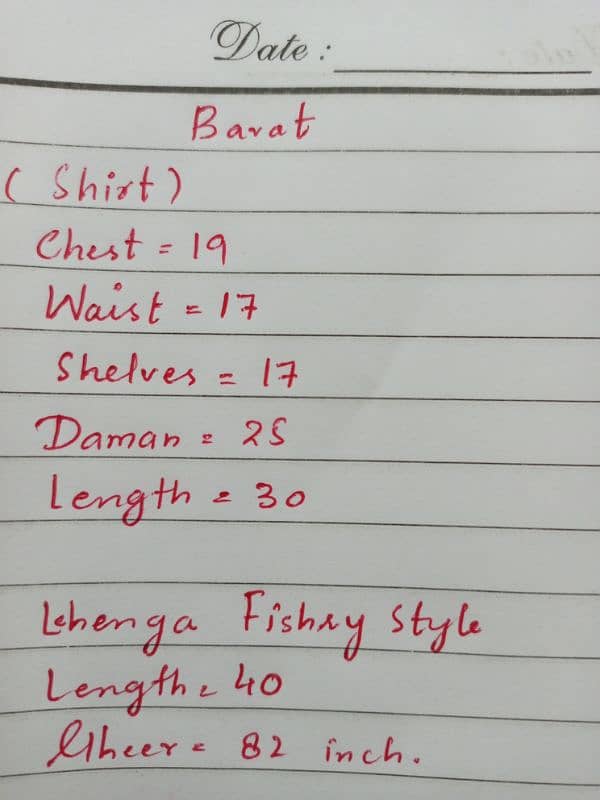 Date :
Barat
( Shirt )
Chest = 19
Waist = 17
Shelves = 17
Daman = 25
Length = 30
Lehenga Fishry Style
Length = 40
Gheer = 82 inch.